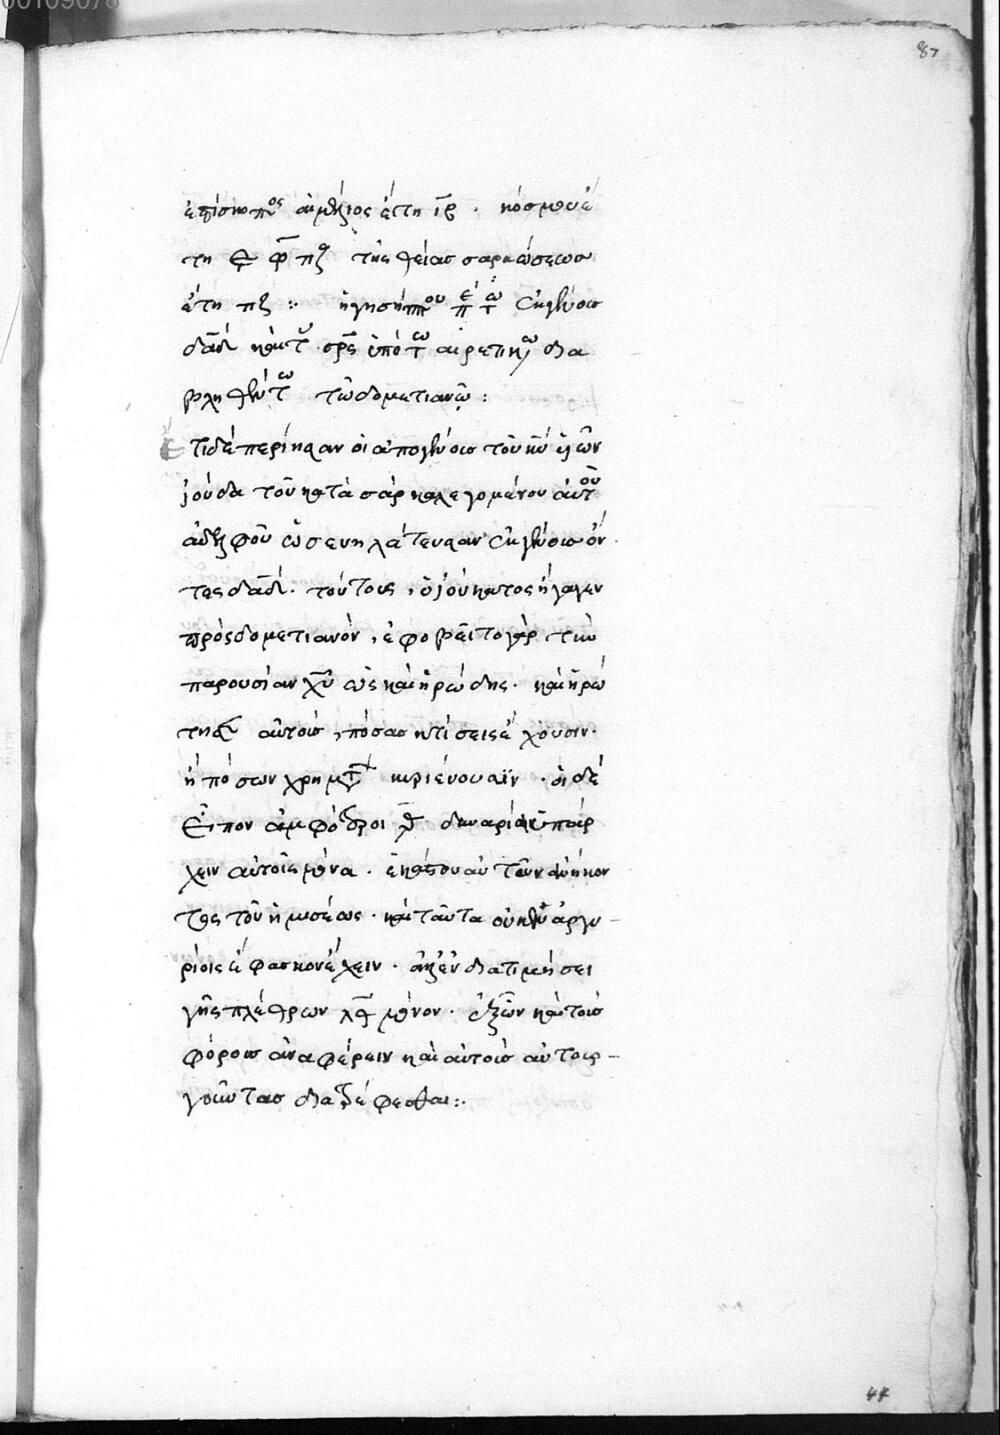 87
ἐπίσκοπος αιμίλιος ἔτη ιβ. κόσμου ἔ
τη ͵ε φ πζ τῆς θείας σαρκώσεως
ἔτη πζ :
δᾶδ καὶ τοῦ σρς ὑπό τῶ αἱρετικῶ δια
βληθέντω τῶ δομετιανῶ :
Ἔτι δέ περίησαν οἱ ἀπο γένους τοῦ κυ
ἰούδα τοῦ κατὰ σάρκα λεγομένου αὐτοῦ
ἀδελφοῦ ὧς ἐκ γένους ὄν
τες δᾶδ. τούτους, ὁ ἰούκατος ἤγαγεν
πρὸς δομετιανόν, ἐφοβεῖτο γὰρ τὴν
παρουσίαν χυ ὡς καὶ ἡρώδης. καὶ ἠρώ
τησεν αὐτοὺς, πόσας κτίσεις ἔχουσιν.
ἢ πόσων χρημάτ κυριεύουσϊν. οἱ δέ
εἶπον ἀμφότεροι δηνάρια ὑπάρ
χειν αὐτοῖς μόνα. ἑκάστου αὐτῶν ἀνήκον
τος τοῦ ἡμισέως. καὶ ταῦτα οὐκ ἐν ἀργυ
ρίοις ἔφασκον ἔχειν. ἀλλ' ἐν διατιμήσει
γῆς πλέθρων λθ μόνον. ἐξ ὧν καὶ τοὺς
φόρους ἀναφέρειν καὶ αὐτοὺς αὐτουρ
γοῦντας διατρέφεσθαι :.
44